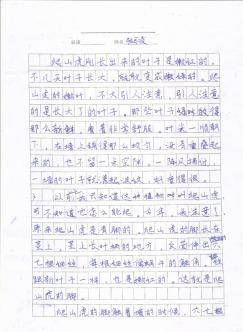 爬山虎刚长出来的叶子是嫩红的,
不几天叶子长大,就变成嫩绿的。爬
山虎的嫩叶,不大引人注意,引人注意
的是长大了的叶子。那些叶子绿得
那么新鲜,看着非常舒服,叶尖一顺朝
下,在墙上铺得那么均匀,没有重叠起
来的,也不留一点空隙。一阵风拂过,
一墙的叶子就漾起波纹,好看得很。
以前我只知道这种植物叫爬山虎,
可不知道它怎么能爬。今年,我注意了,
原来爬山虎是有脚的。爬山虎的脚长在
茎上。茎上长叶柄的地方,反面伸出六
七根细丝,每根细丝像蜗牛的触角。细丝
跟新叶子一样,也是嫩红的。这就是爬
山虎的脚。
爬山虎的脚触着墙的时候,六七根